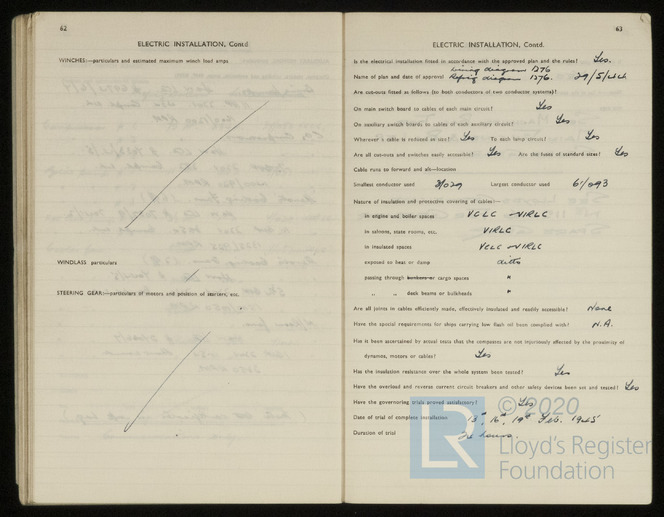 62
ELECTRIC INSTALLATION, Contd
WINCHES:—particulars and estimated maximum winch load amps
WINDLASS particulars
STEERING GEAR:—particulars of motors and position of starters, etc.
63
ELECTRIC INSTALLATION, Contd.
Is the electrical installation fitted in accordance with the approved plan and the rules? Yes.
Wiring diagram 1276
Name of plan and date of approval Refrig diagram 1376. 29/5/44
Are cut-outs fitted as follows (to both conductors of two conductor systems)?
On main switch board to cables of each main circuit? Yes
On auxiliary switch boards to cables of each auxiliary circuit? Yes
Wherever a cable is reduced in size? Yes To each lamp circuit? Yes
Are all cut-outs and switches easily accessible? Yes Are the fuses of standard sizes? Yes
Cable runs to forward and aft—location
Smallest conductor used 3/029 Largest conductor used 61/093
Nature of insulation and protective covering of cables:—
in engine and boiler spaces VCLC - VIRLC
in saloons, state rooms, etc. VIRLC
in insulated spaces VCLC - VIRLC
exposed to heat or damp ditto
passing through bunkers or cargo spaces "
" " deck beams or bulkheads "
Are all joints in cables efficiently made, effectively insulated and readily accessible? None
Have the special requirements for ships carrying low flash oil been complied with? N.A.
Has it been ascertained by actual tests that the compasses are not injuriously affected by the proximity of
dynamos, motors or cables? Yes
Has the insulation resistance over the whole system been tested? Yes
Have the overload and reverse current circuit breakers and other safety devices been set and tested? Yes
Have the governoring trials proved satisfactory? Yes
Date of trial of complete installation 13th, 16th, 19th Feb. 1945
Duration of trial hours.
© 2020
LR
Lloyd's Register
Foundation